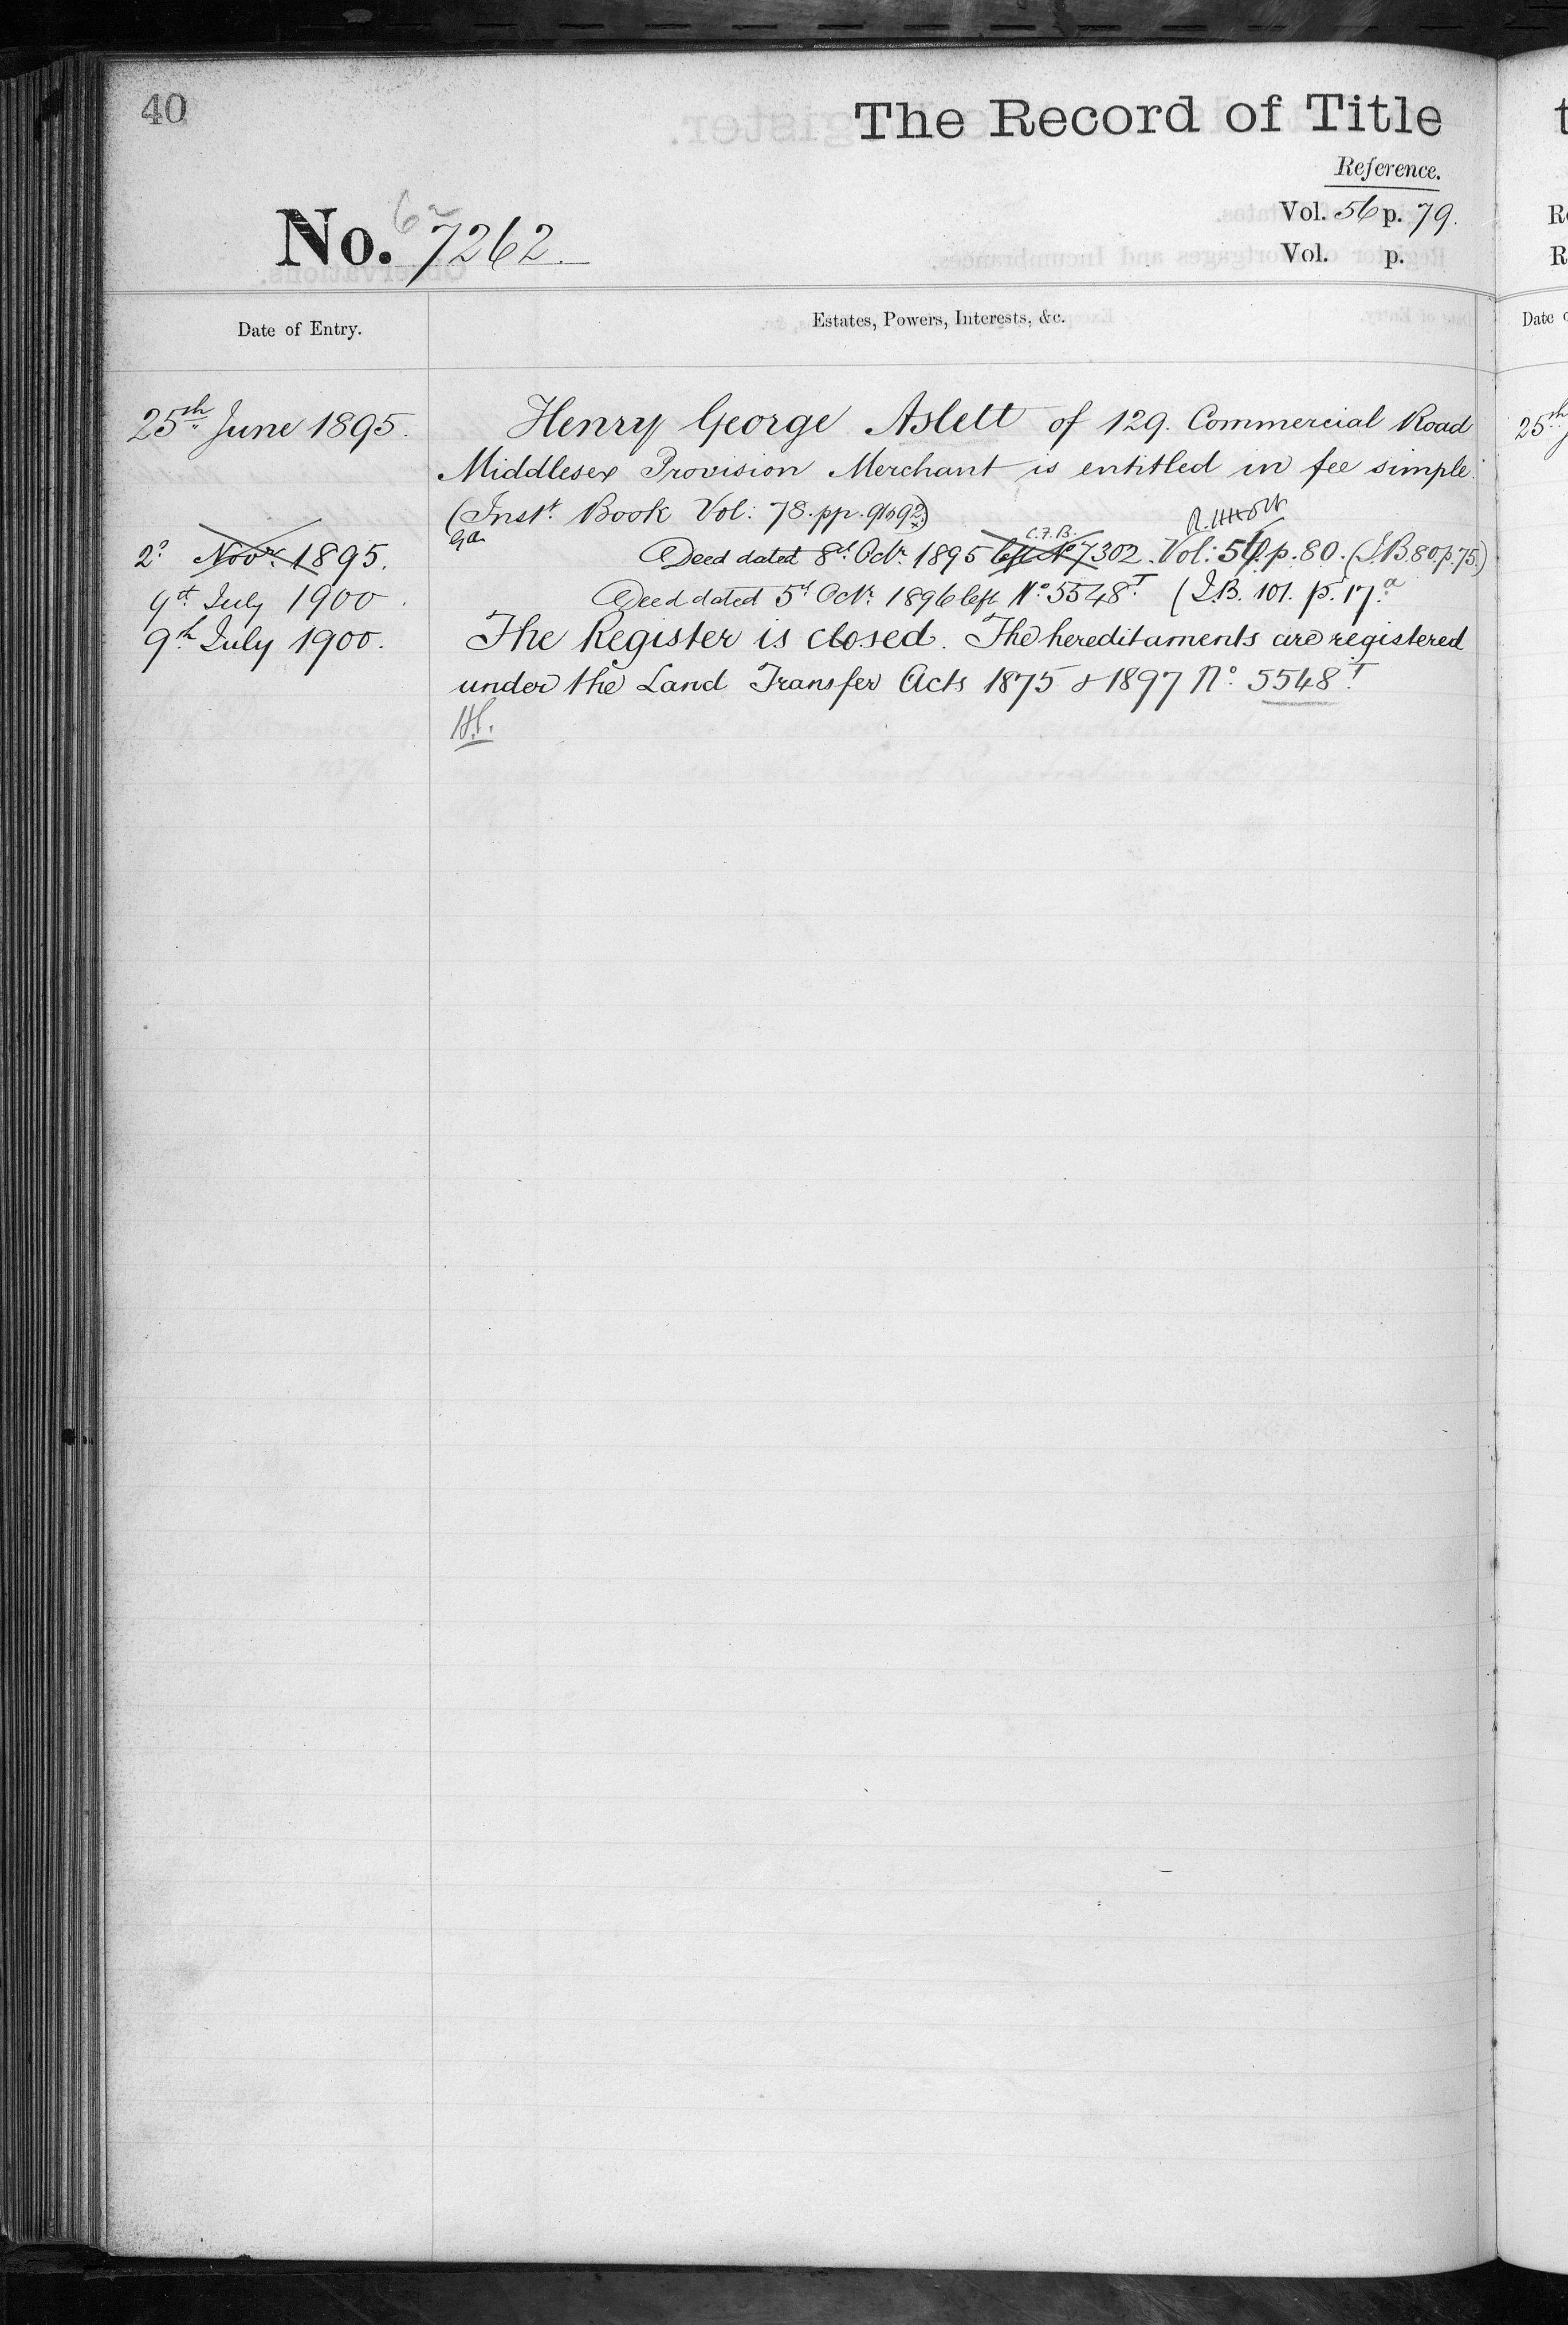 40
The Record of Title
Reference.
No. 7262.
Vol. 56 p. 79.
Vol. p.
Date of Entry.
Estates, Powers, Interests, &c.
25th June 1895.
Henry George Aslett of 129. Commercial Road
Middlesex Provision Merchant is entitled in fee simple.
(Inst. Book Vol: 78. pp. 91 to 92)
C.F.B.
2d Novr. 1895.
Deed dated 8th Octr. 1895 left No 7302. Vol: 56 p. 80. (I.B. 80 p. 75.)
9th July 1900
Deed dated 5th Octr. 1896 left No. 5548T (I.B. 101. p. 17a
9th July 1900.
The Register is closed. The hereditaments are registered
under the Land Transfer Acts 1875 & 1897 No. 5548T.
25th